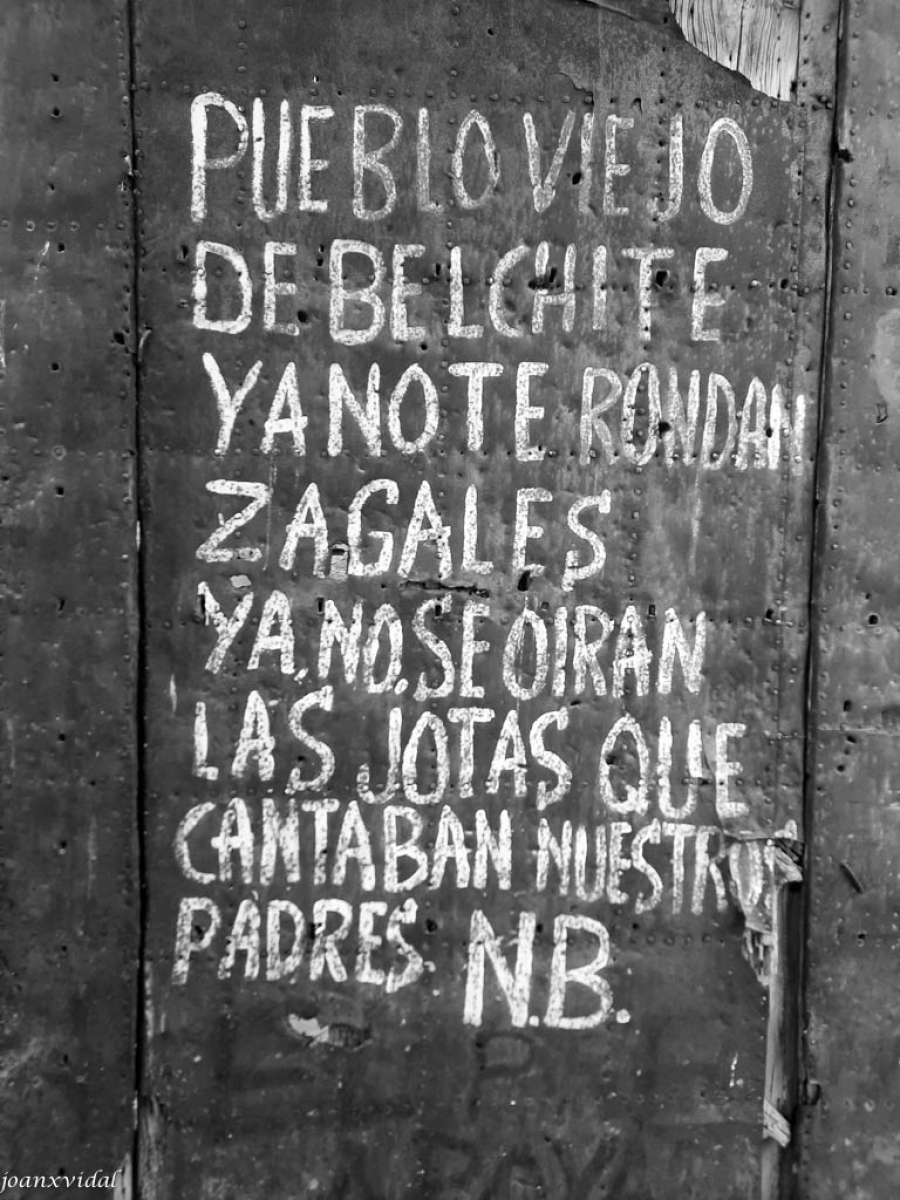 PUEBLO VIEJO
DE BELCHITE
YA NO TE RONDAN
ZAGALES
YA, NO. SE OIRAN
LAS JOTAS QUE
CANTABAN NUESTROS
PADRES. N.B.
joanxvidal